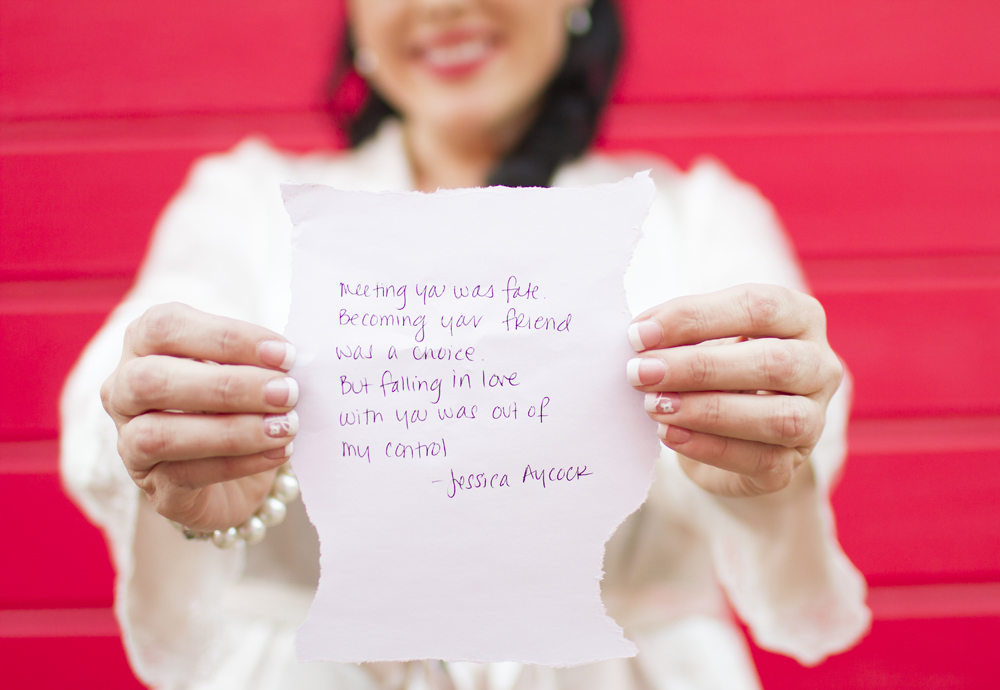 Meeting you was fate.
Becoming your friend
was a choice.
But falling in love
with you was out of
my control
-Jessica Aycock